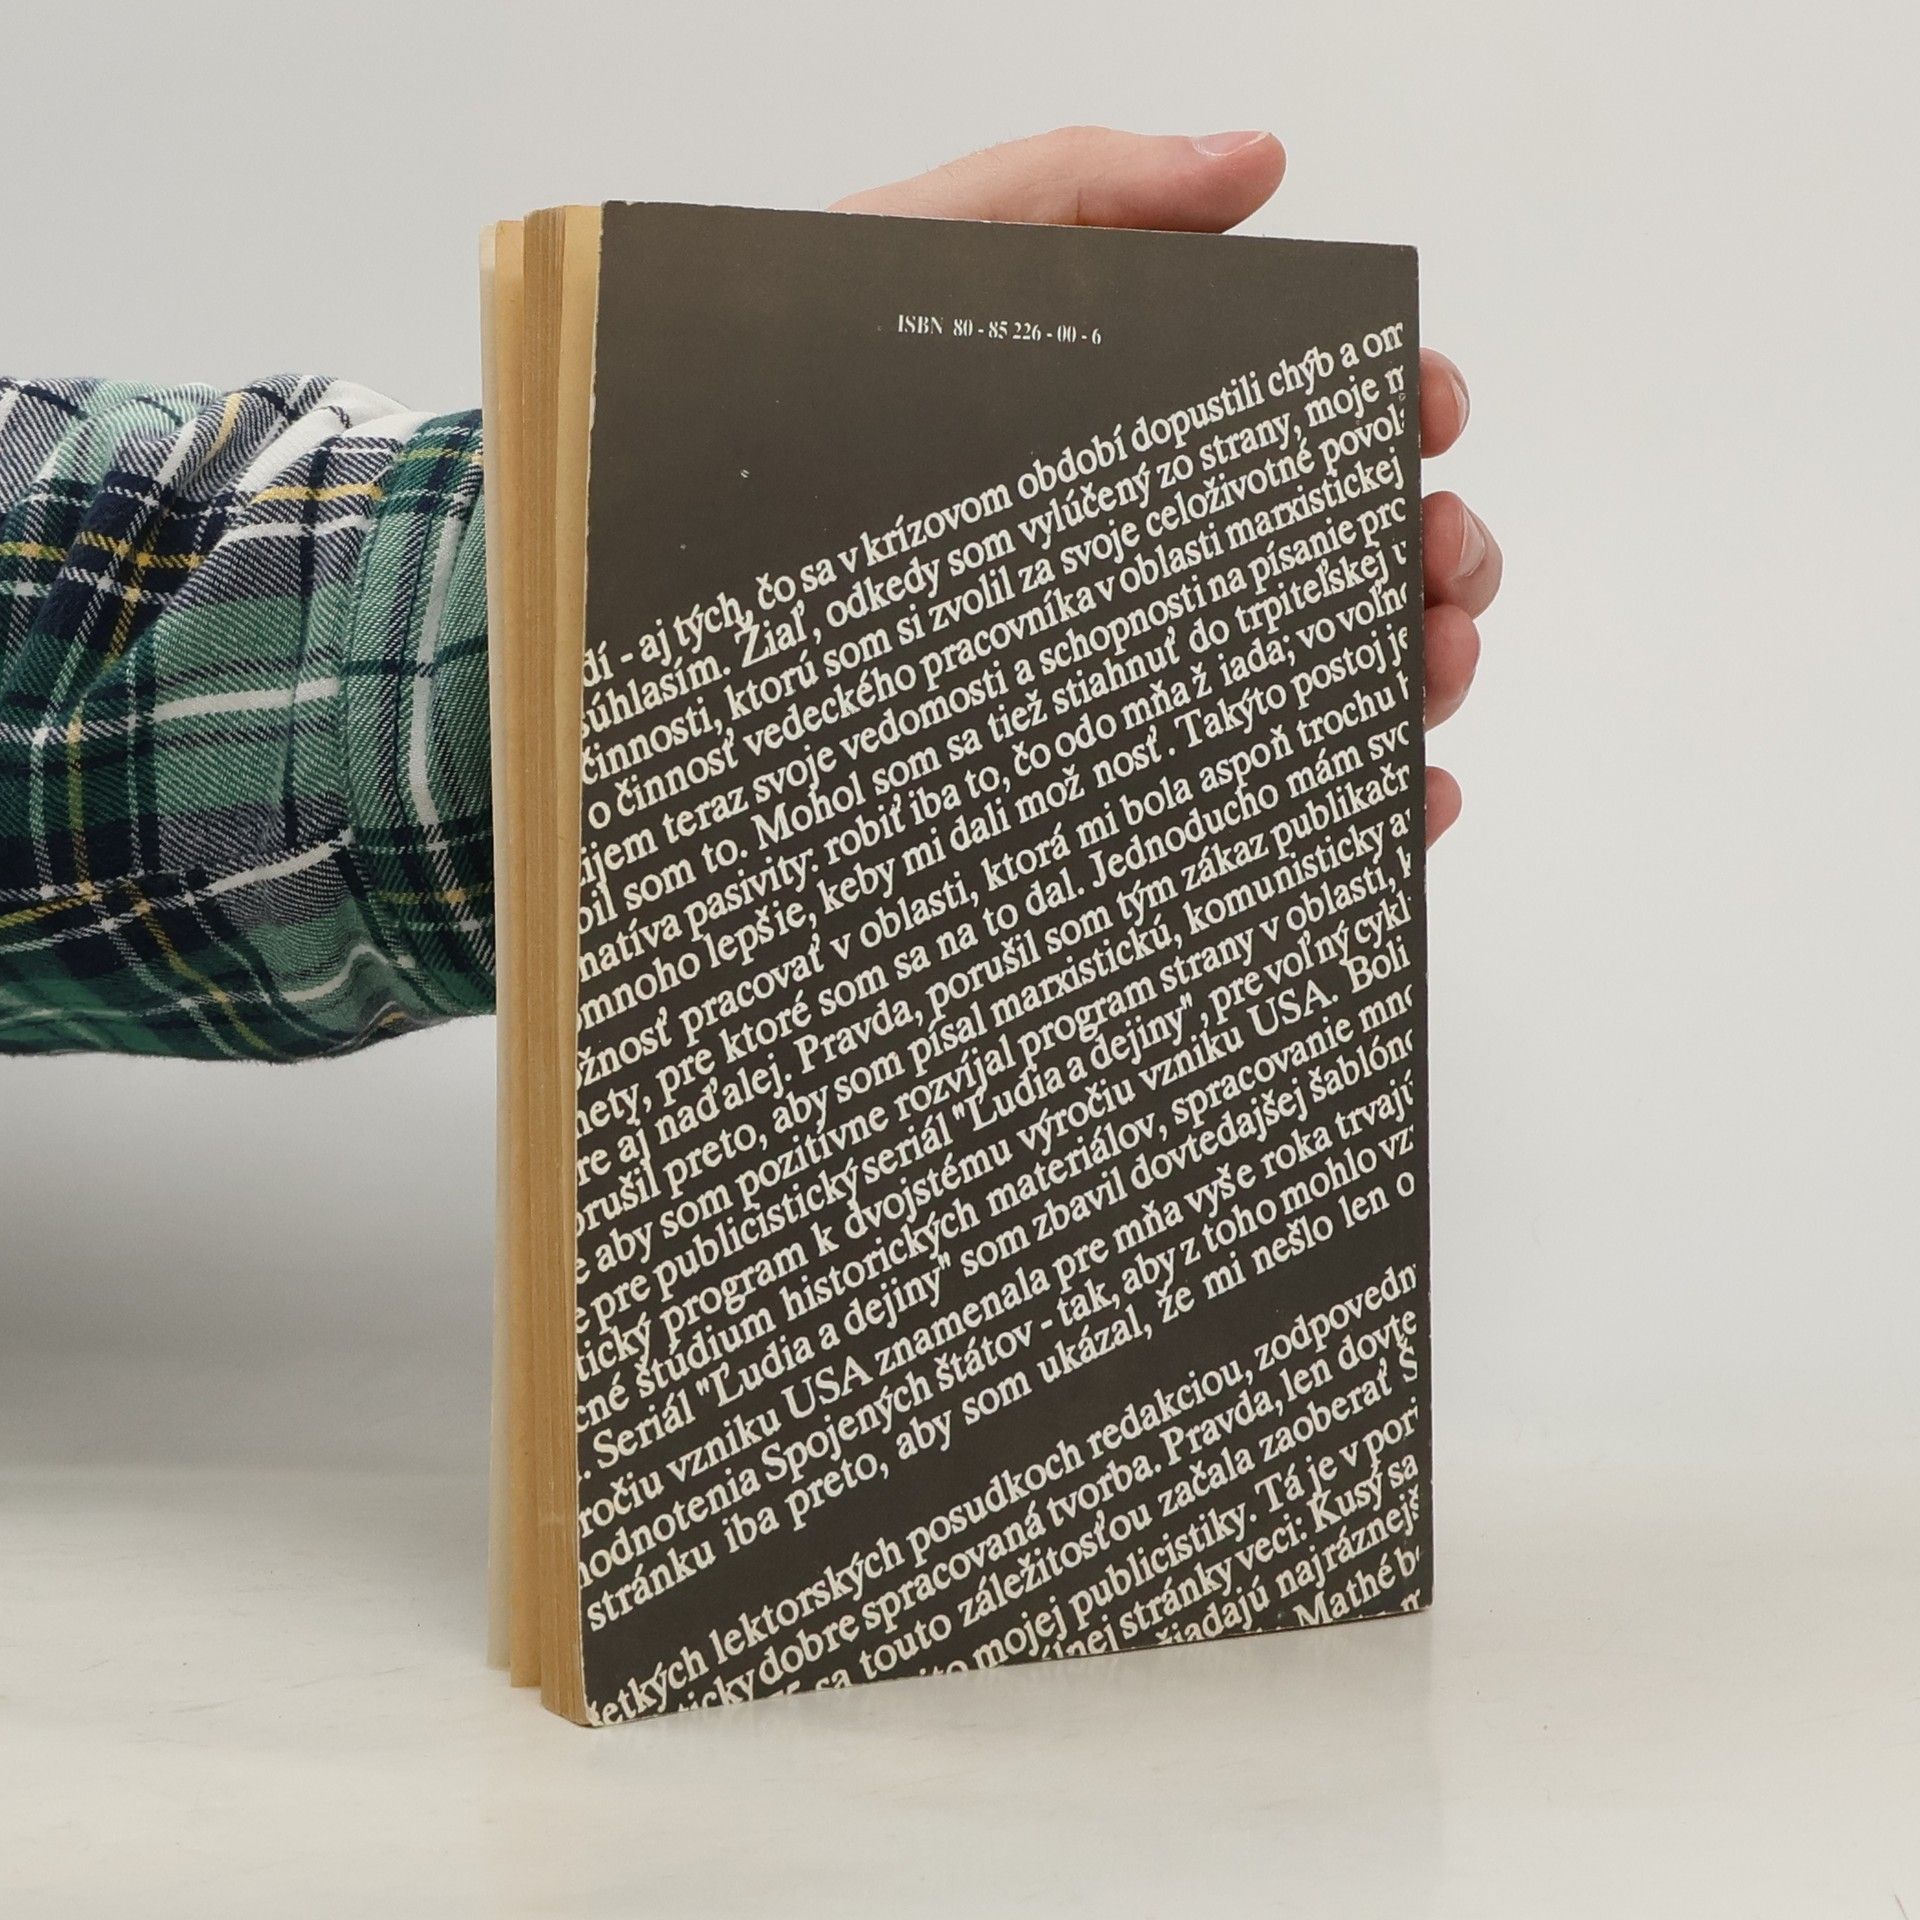 ISBN 80 - 85 226 - 00 - 6
dí - aj tých, čo sa v krízovom období dopustili chýb a om
súhlasím. Žiaľ, odkedy som vylúčený zo strany, moje
činnosti, ktorú som si zvolil za svoje celoživotné povol
o činnosť vedeckého pracovníka v oblasti marxistickej
ijem teraz svoje vedomosti a schopnosti na písanie pro
bil som to. Mohol som sa tiež stiahnuť do trpiteľskej u
natíva pasivity: robiť iba to, čo odo mňa ž iada; vo voľno
omnoho lepšie, keby mi dali mož nosť. Takýto postoj je
ožnosť pracovať v oblasti, ktorá mi bola aspoň trochu
nety, pre ktoré som sa na to dal. Jednoducho mám svo
re aj naďalej. Pravda, porušil som tým zákaz publikačn
orušil preto, aby som písal marxistickú, komunisticky a
e aby som pozitívne rozvíjal program strany v oblasti, k
e pre publicistický seriál "Ľudia a dejiny", pre voľný cykl
tický program k dvojstému výročiu vzniku USA. Boli
cné štúdium historických materiálov, spracovanie mno
. Seriál "Ľudia a dejiny" som zbavil dovtedajšej šablóno
ročiu vzniku USA znamenala pre mňa vyše roka trvajú
hodnotenia Spojených štátov - tak, aby z toho mohlo vz
stránku iba preto, aby som ukázal, že mi nešlo len o
šetkých lektorských posudkoch redakciou, zodpovedn
ticky dobre spracovaná tvorba. Pravda, len dovte
sa touto záležitosťou začala zaoberať Š
mojej publicistiky. Tá je v por
stránky veci: Kusý sa
žiadajú najráznejš
Mathé b